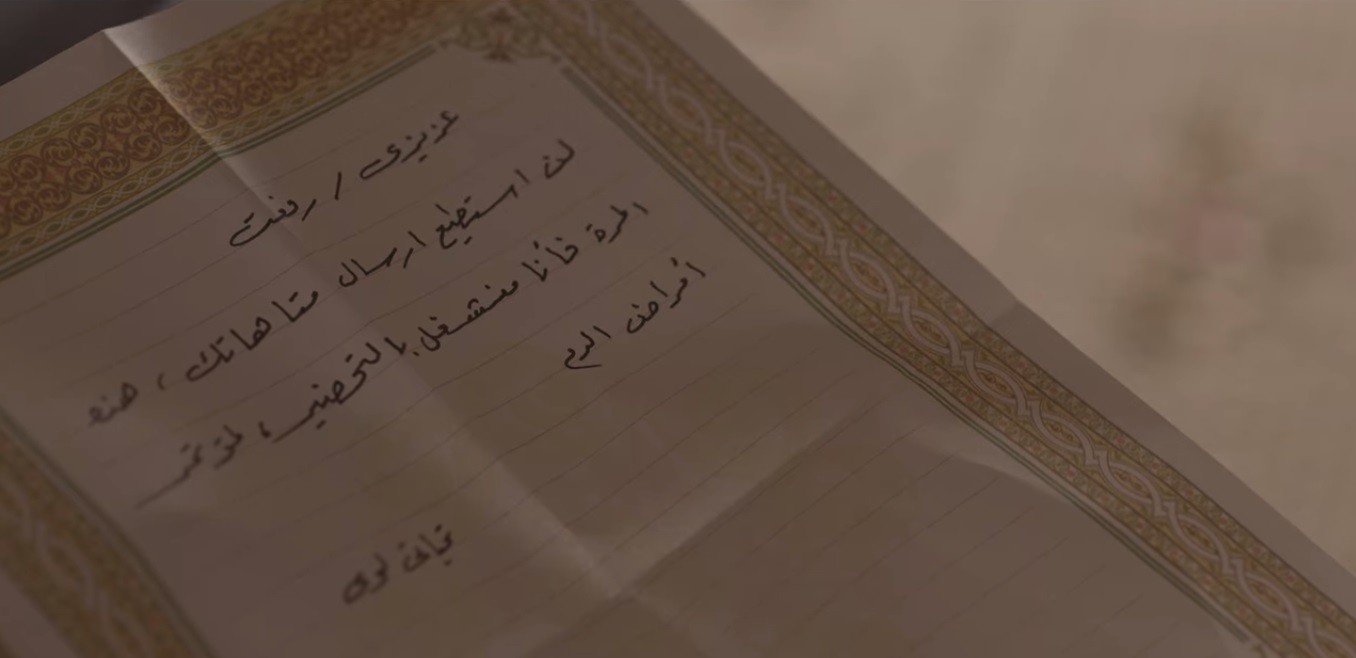 عزيزى / رفعت
لن استطيع ارسال متاهاتك ، هذه
المرة فأنا منشغل بالتحضير، لمؤتمر
أمراض الدم
لوى